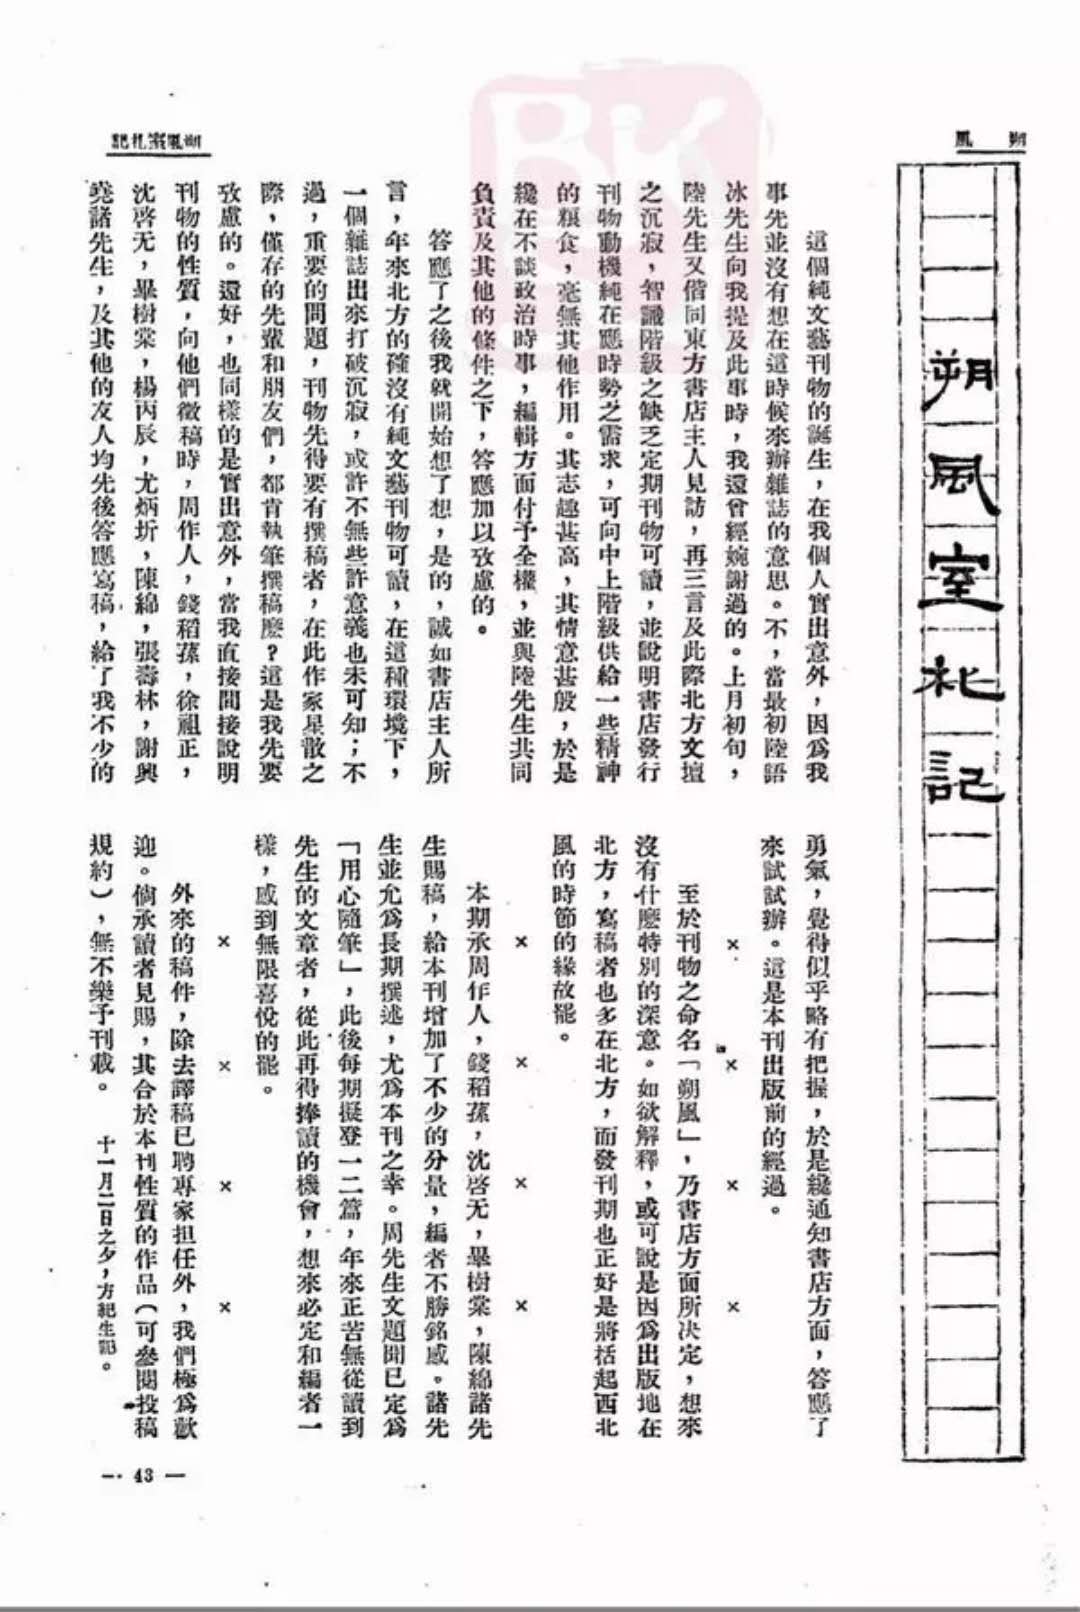 朔風
朔風室札記
朔風室札記
這個純文藝刊物的誕生，在我個人實出意外，因爲我
事先並沒有想在這時候來辦雜誌的意思。不，當最初陸語
冰先生向我提及此事時，我還曾經婉謝過的。上月初旬，
陸先生又偕同東方書店主人見訪，再三言及此際北方文壇
之沉寂，智識階級之缺乏定期刊物可讀，並說明書店發行
刊物動機純在應時勢之需求，可向中上階級供給一些精神
的糧食，毫無其他作用。其志趣甚高，其情意甚殷，於是
纔在不談政治時事，編輯方面付予全權，並與陸先生共同
負責及其他的條件之下，答應加以攷慮的。
答應了之後我就開始想了想，是的，誠如書店主人所
言，年來北方的確沒有純文藝刊物可讀，在這種環境下，
一個雜誌出來打破沉寂，或許不無些許意義也未可知；不
過，重要的問題，刊物先得要有撰稿者，在此作家星散之
際，僅存的先輩和朋友們，都肯執筆撰稿麽？這是我先要
攷慮的。還好，也同樣的是實出意外，當我直接間接說明
刊物的性質，向他們徵稿時，周作人，錢稻蓀，徐祖正，
沈啓无，畢樹棠，楊丙辰，尤炳圻，陳綿，張壽林，謝興
堯諸先生，及其他的友人均先後答應寫稿，給了我不少的
勇氣，覺得似乎略有把握，於是纔通知書店方面，答應了
來試試辦。這是本刊出版前的經過。
× × × ×
至於刊物之命名「朔風」，乃書店方面所決定，想來
沒有什麽特別的深意。如欲解釋，或可說是因爲出版地在
北方，寫稿者也多在北方，而發刊期也正好是將括起西北
風的時節的緣故罷。
× × × ×
本期承周作人，錢稻蓀，沈啓无，畢樹棠，陳綿諸先
生賜稿，給本刊增加了不少的分量，編者不勝銘感。諸先
生並允爲長期撰述，尤爲本刊之幸。周先生文題聞已定爲
「用心隨筆」，此後每期擬登一二篇，年來正苦無從讀到
先生的文章者，從此再得捧讀的機會，想來必定和編者一
樣，感到無限喜悅的罷。
× × × ×
外來的稿件，除去譯稿已聘專家担任外，我們極爲歡
迎。倘承讀者見賜，其合於本刊性質的作品（可參閱投稿
規約），無不樂予刊載。 十一月二日之夕，方紀生記。
— 43 —